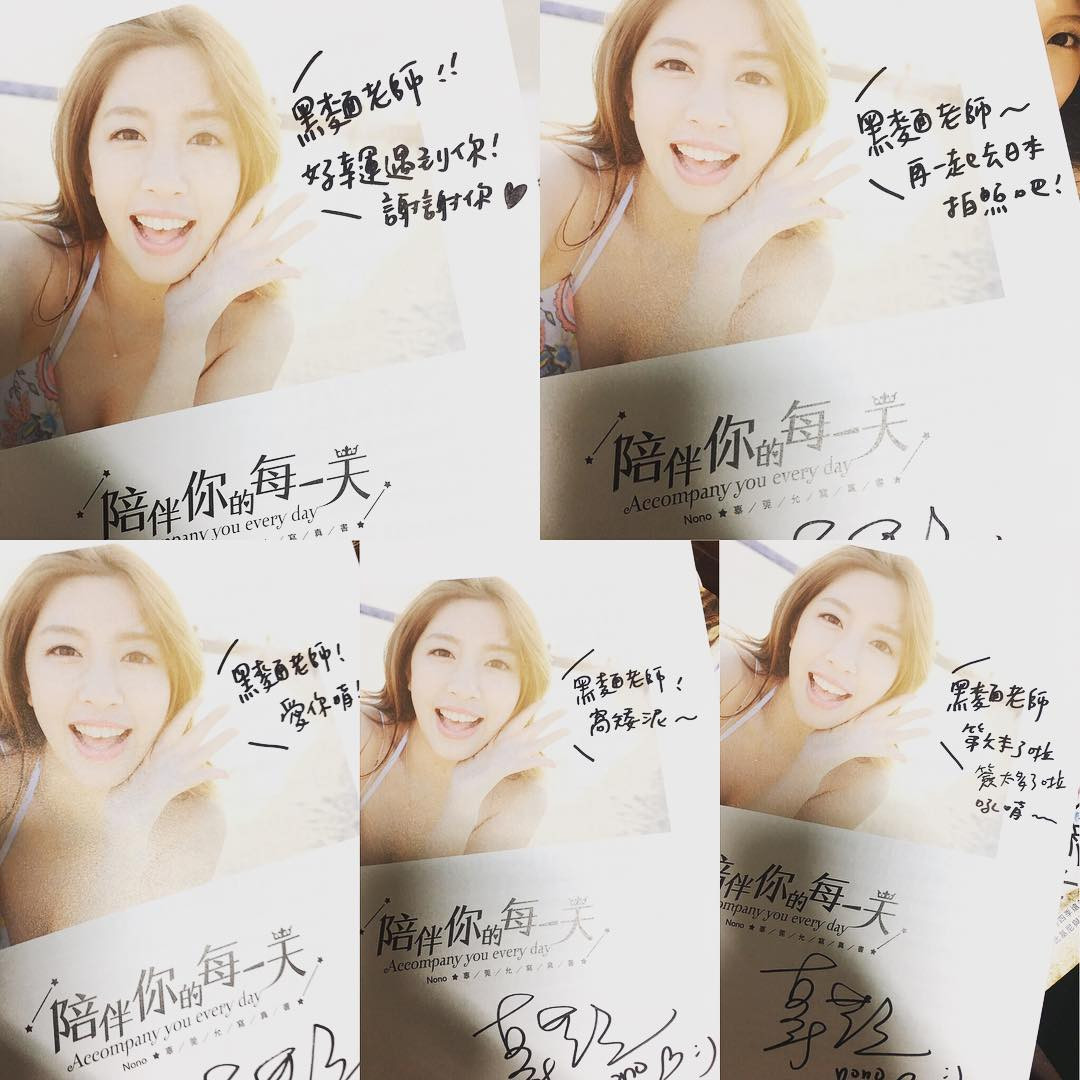 黑麵老師!!
好幸運遇到你!
謝謝你♥
陪伴你的每一天
mpany you every day
寫/真/書★
黑麵老師~
再一起去日本
拍照吧!
陪伴你的每一天
Accompany you every day
Nono★辜/莞/允/寫/真/書★
黑麵老師!
愛你唷!
陪伴你的每一天
Accompany you every day
Nono★辜/莞/允/寫/真/書★
黑麵老師!
高矮泥~
陪伴你的每一天
Accompany you every day
Nono★辜/莞/允/寫/真/書★
:)
黑麵老師
簽太多了啦
吼唷~
伴你的每一天
ompany you every day
Nono★辜/莞/允/寫/真/書★
nono :)